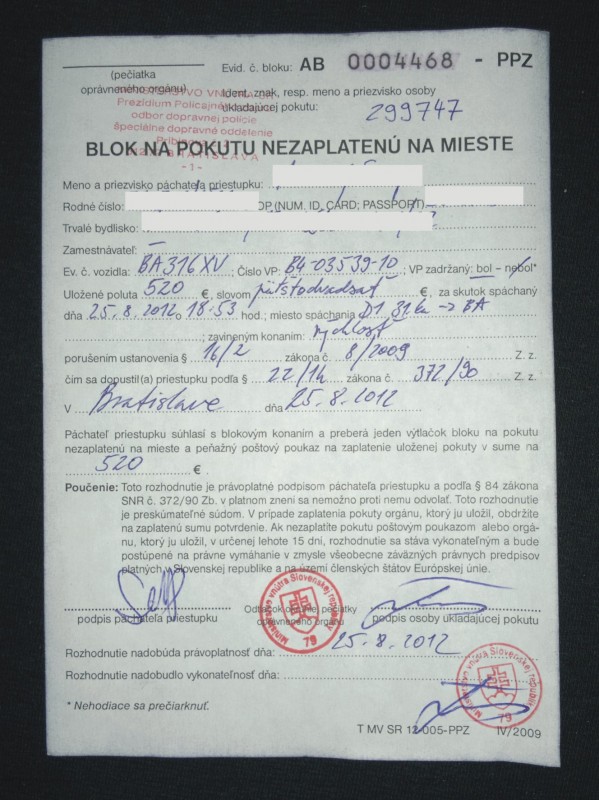 (pečiatka
oprávneného orgánu)
Evid. č. bloku: AB 0004468 - PPZ
Ident. znak, resp. meno a priezvisko osoby
ukladajúcej pokutu: 299747
MINISTERSTVO VNÚTRA
Prezídium Policajného
odbor dopravnej polície
špeciálne dopravné oddelenie
BRATISLAVA
-1-
BLOK NA POKUTU NEZAPLATENÚ NA MIESTE
Meno a priezvisko páchateľa priestupku:
Rodné číslo: OP (NUM. ID, CARD; PASSPORT)
Trvalé bydlisko:
Zamestnávateľ: –
Ev. č. vozidla: BA316XV ; Číslo VP: B4-03539-10 ; VP zadržaný: bol – nebol*
Uložené poluta 520 €, slovom päťstodvadsať €, za skutok spáchaný
dňa 25.8.2012 o 18:53 hod.; miesto spáchania D1 31km -> BA
; zavineným konaním: rýchlosť
porušením ustanovenia § 16/2 zákona č. 8/2009 Z. z.
čím sa dopustil(a) priestupku podľa § 22/1k zákona č. 372/90 Z. z.
V Bratislave dňa 25.8.2012
Páchateľ priestupku súhlasí s blokovým konaním a preberá jeden výtlačok bloku na pokutu
nezaplatenú na mieste a peňažný poštový poukaz na zaplatenie uloženej pokuty v sume na
520 €.
Poučenie: Toto rozhodnutie je právoplatné podpisom páchateľa priestupku a podľa § 84 zákona
SNR č. 372/90 Zb. v platnom znení sa nemožno proti nemu odvolať. Toto rozhodnutie
je preskúmateľné súdom. V prípade zaplatenia pokuty orgánu, ktorý ju uložil, obdržíte
na zaplatenú sumu potvrdenie. Ak nezaplatíte pokutu poštovým poukazom alebo orgá-
nu, ktorý ju uložil, v určenej lehote 15 dní, rozhodnutie sa stáva vykonateľným a bude
postúpené na právne vymáhanie v zmysle všeobecne záväzných právnych predpisov
platných v Slovenskej republike a na území členských štátov Európskej únie.
podpis páchateľa priestupku
Odtlačok okrúhlej pečiatky
oprávneného orgánu
podpis osoby ukladajúcej pokutu
Ministerstvo vnútra Slovenskej republiky
79
Rozhodnutie nadobúda právoplatnosť dňa: 25.8.2012
Rozhodnutie nadobudlo vykonateľnosť dňa:
Ministerstvo vnútra Slovenskej republiky
79
* Nehodiace sa prečiarknuť.
T MV SR 12-005-PPZ IV/2009